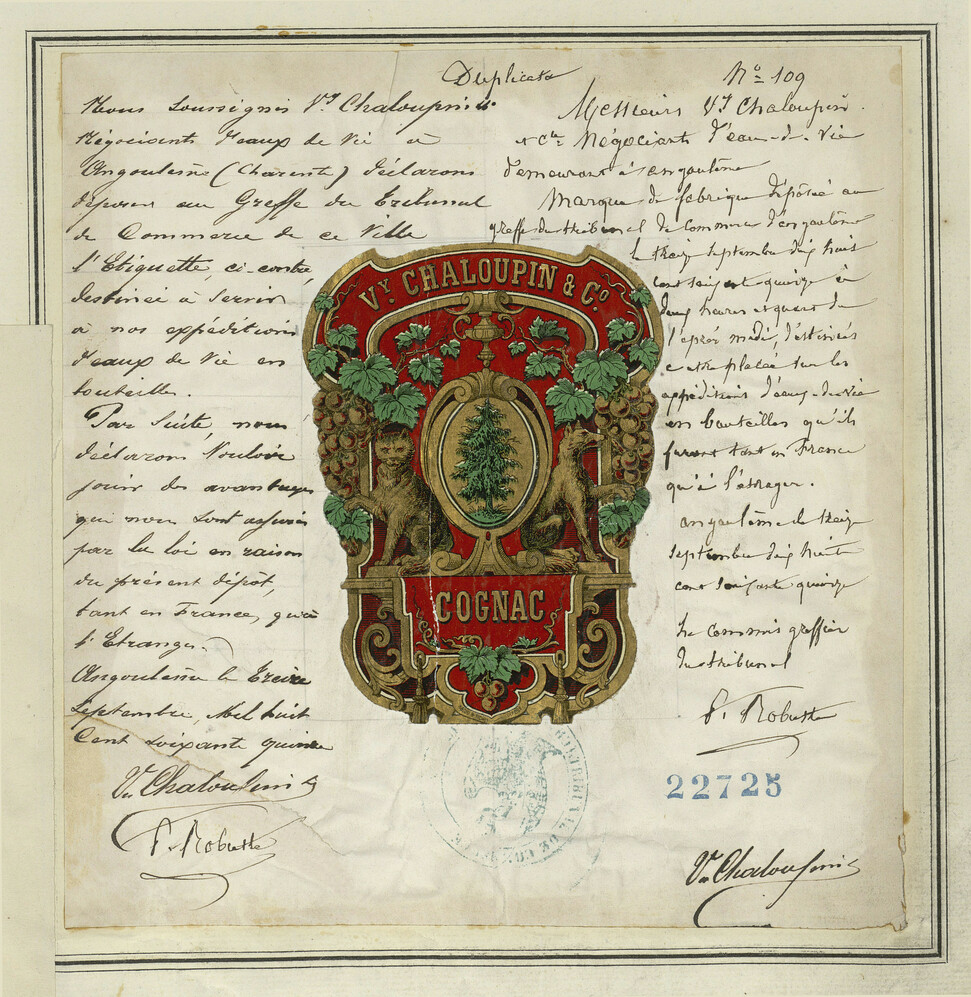 Duplicata
Nous soussignés Vy Chaloupin &
Négociants d'eaux de Vie à
Angoulême (Charente) déclarons
déposer au Greffe du Tribunal
de Commerce de ce Ville
l'Etiquette, ci-contre,
destinée à servir
à nos expéditions
d'eaux de Vie en
bouteilles.
Par Suite, nous
déclarons Vouloir
jouir des avantages
qui nous sont assurés
par la loi en raison
du présent dépôt,
tant en France, qu'à
l'Etranger.
Angoulême le Treize
Septembre, Mil huit
Cent soixante quinze
Vy Chaloupin &
P. Robuste
Nº 109
Messieurs Vy Chaloupin
& Cie Négociants d'eau-de-vie
demeurant à angoulême
Marque de fabrique déposée au
greffe du tribunal de Commerce d'angoulême
le treize septembre dix huit
cent soixante quinze à
deux heures et quart de
l'après midi, destinée
a être placée sur les
expéditions d'eaux-de-vie
en bouteilles qu'ils
feront tant en France
qu'à l'étranger.
angoulême le treize
septembre dix huit
cent soixante quinze
Le commis greffier
du tribunal
P. Robuste
VY. CHALOUPIN & CO
COGNAC
22725
TRIBUNAL DE COMMERCE
Vy Chaloupin &